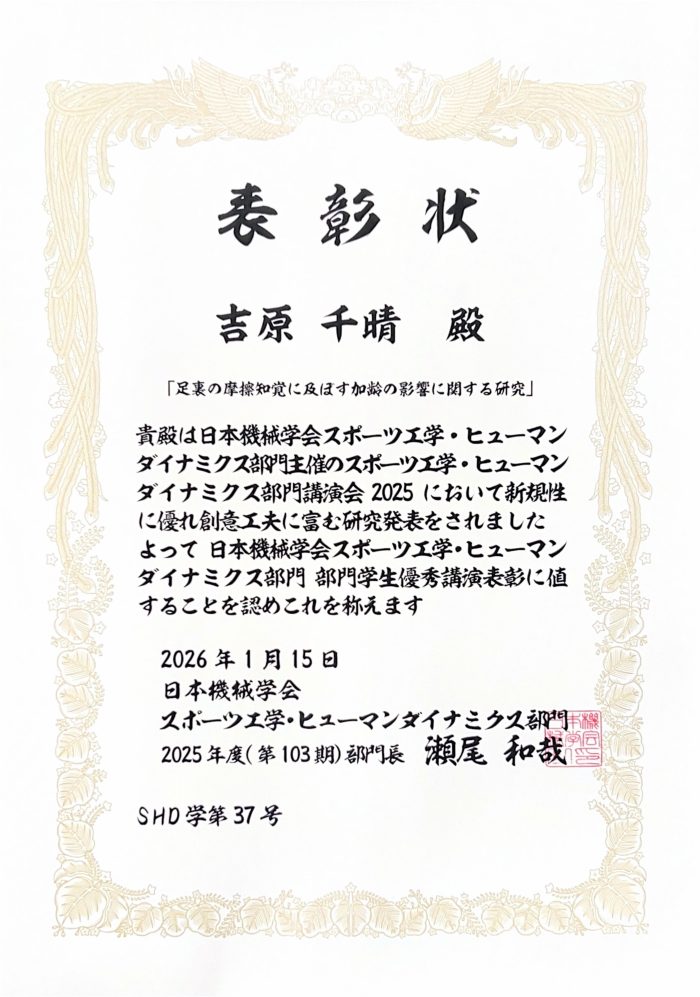 表彰状
吉原 千晴 殿
「足裏の摩擦知覚に及ぼす加齢の影響に関する研究」
貴殿は日本機械学会スポーツ工学・ヒューマン
ダイナミクス部門主催のスポーツ工学・ヒューマン
ダイナミクス部門講演会 2025 において新規性
に優れ創意工夫に富む研究発表をされました
よって 日本機械学会スポーツ工学・ヒューマン
ダイナミクス部門 部門学生優秀講演表彰に値
することを認めこれを称えます
2026 年 1 月 15 日
日本機械学会
スポーツ工学・ヒューマンダイナミクス部門
2025 年度(第 103 期)部門長 瀬尾 和哉
SHD 学第 37 号